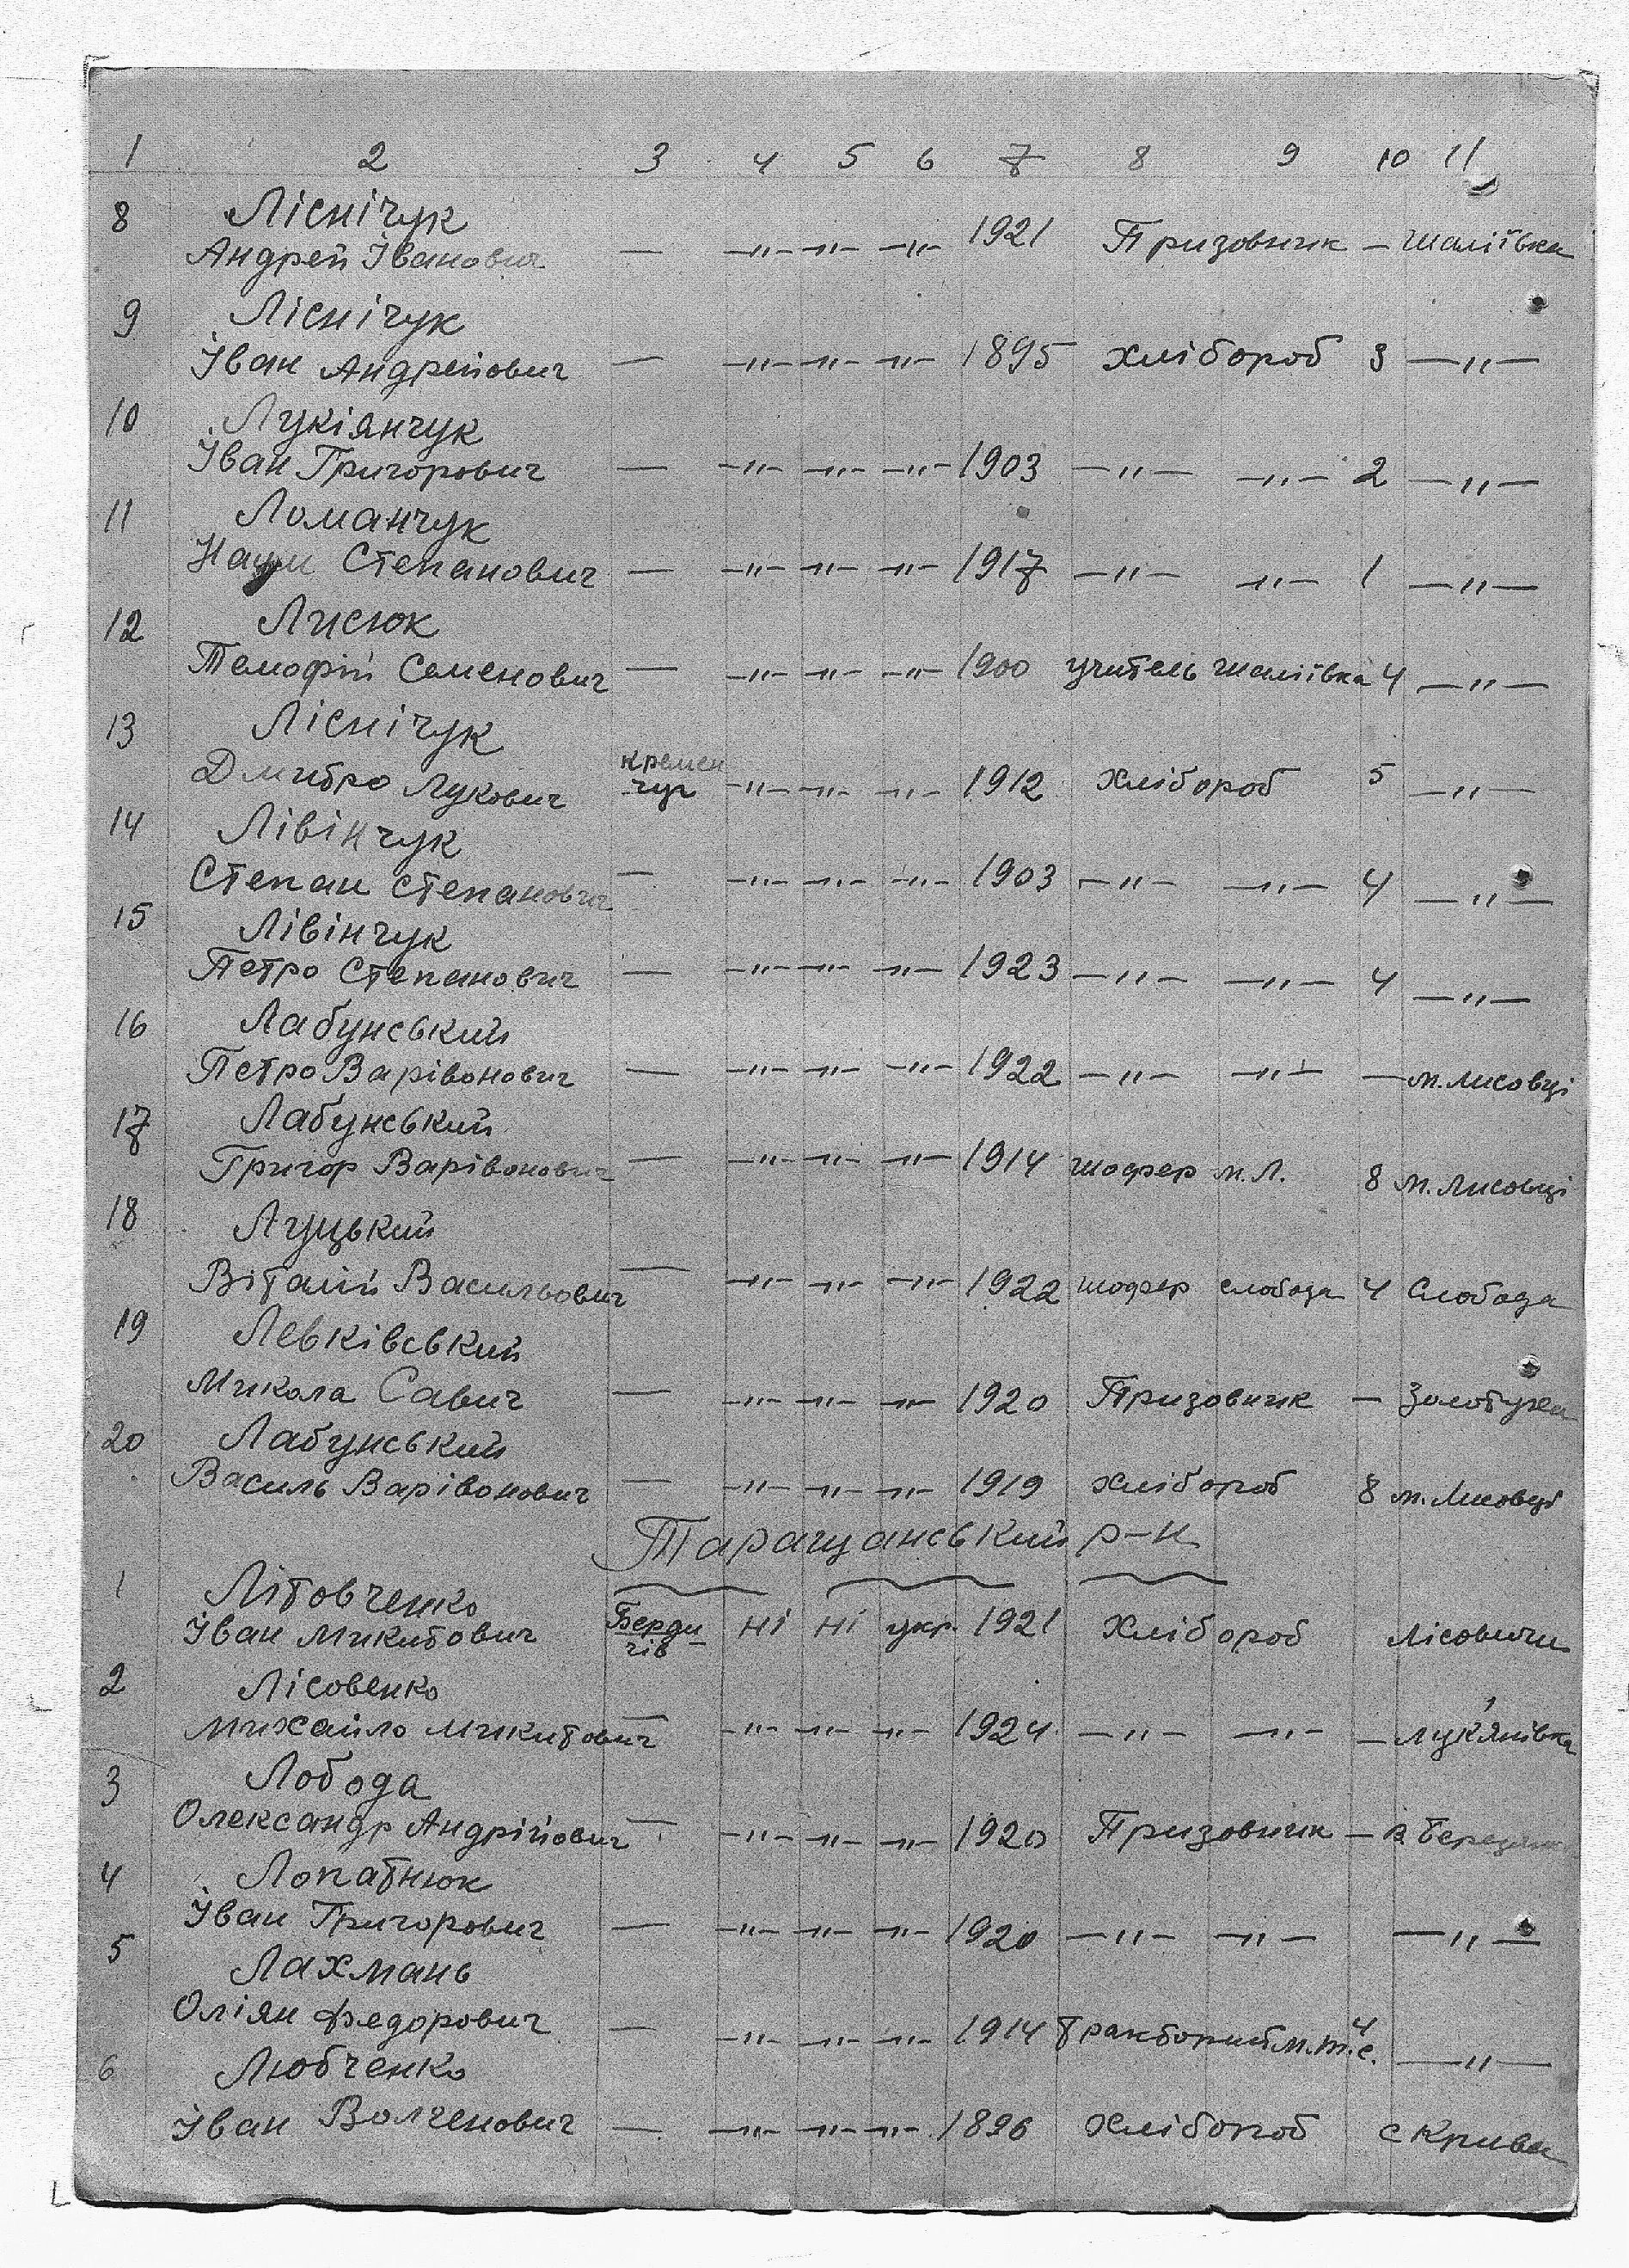 1 2 3 4 5 6 7 8 9 10 11
8 Ліснічук
Андрей Іванович — —"— —"— —"— 1921 Призовник — Шаліївка
9 Ліснічук
Іван Андрейович — —"— —"— —"— 1895 хлібороб 3 —"—
10 Лукіянчук
Іван Григорович — —"— —"— —"— 1903 —"— —"— 2 —"—
11 Ломанчук
Наум Степанович — —"— —"— —"— 1917 —"— —"— 1 —"—
12 Лисюк
Темофій Семенович — —"— —"— —"— 1900 учитель Шаліївка 4 —"—
13 Ліснічук
Дмитро Лукович кремен чуг —"— —"— —"— 1912 Хлібороб 5 —"—
14 Лівінчук
Степан Степанович — —"— —"— —"— 1903 —"— —"— 4 —"—
15 Лівінчук
Петро Степанович — —"— —"— —"— 1923 —"— —"— 4 —"—
16 Лабунський
Петро Варівонович — —"— —"— —"— 1922 —"— —"— — м. Лисовці
17 Лабунський
Григор Варівонович — —"— —"— —"— 1914 шофер м. Л. 8 м. Лисовці
18 Луцький
Віталій Васильович — —"— —"— —"— 1922 шофер слобода 4 Слобода
19 Левківський
Микола Савич — —"— —"— —"— 1920 Призовник — Золотуха
20 Лабунський
Василь Варівонович — —"— —"— —"— 1919 хлібороб 8 м. Лисовці
Таращанський р-н
1 Літовченко
Іван Микитович Берди чів ні ні укр. 1921 Хлібороб Лісовичи
2 Лісовенко
Михайло Микитович — —"— —"— —"— 1924 —"— —"— — Лук'янівка
3 Лобода
Олександр Андрійович — —"— —"— —"— 1920 Призовник — В.
4 Лопатнюк
Іван Григорович — —"— —"— —"— 1920 —"— —"— —"—
5 Лахмань
Оліян Федорович — —"— —"— —"— 1914 тракторист м.т.с. 4 —"—
6 Любченко
Іван Волченович — —"— —"— —"— 1896 Хлібороб с Крива